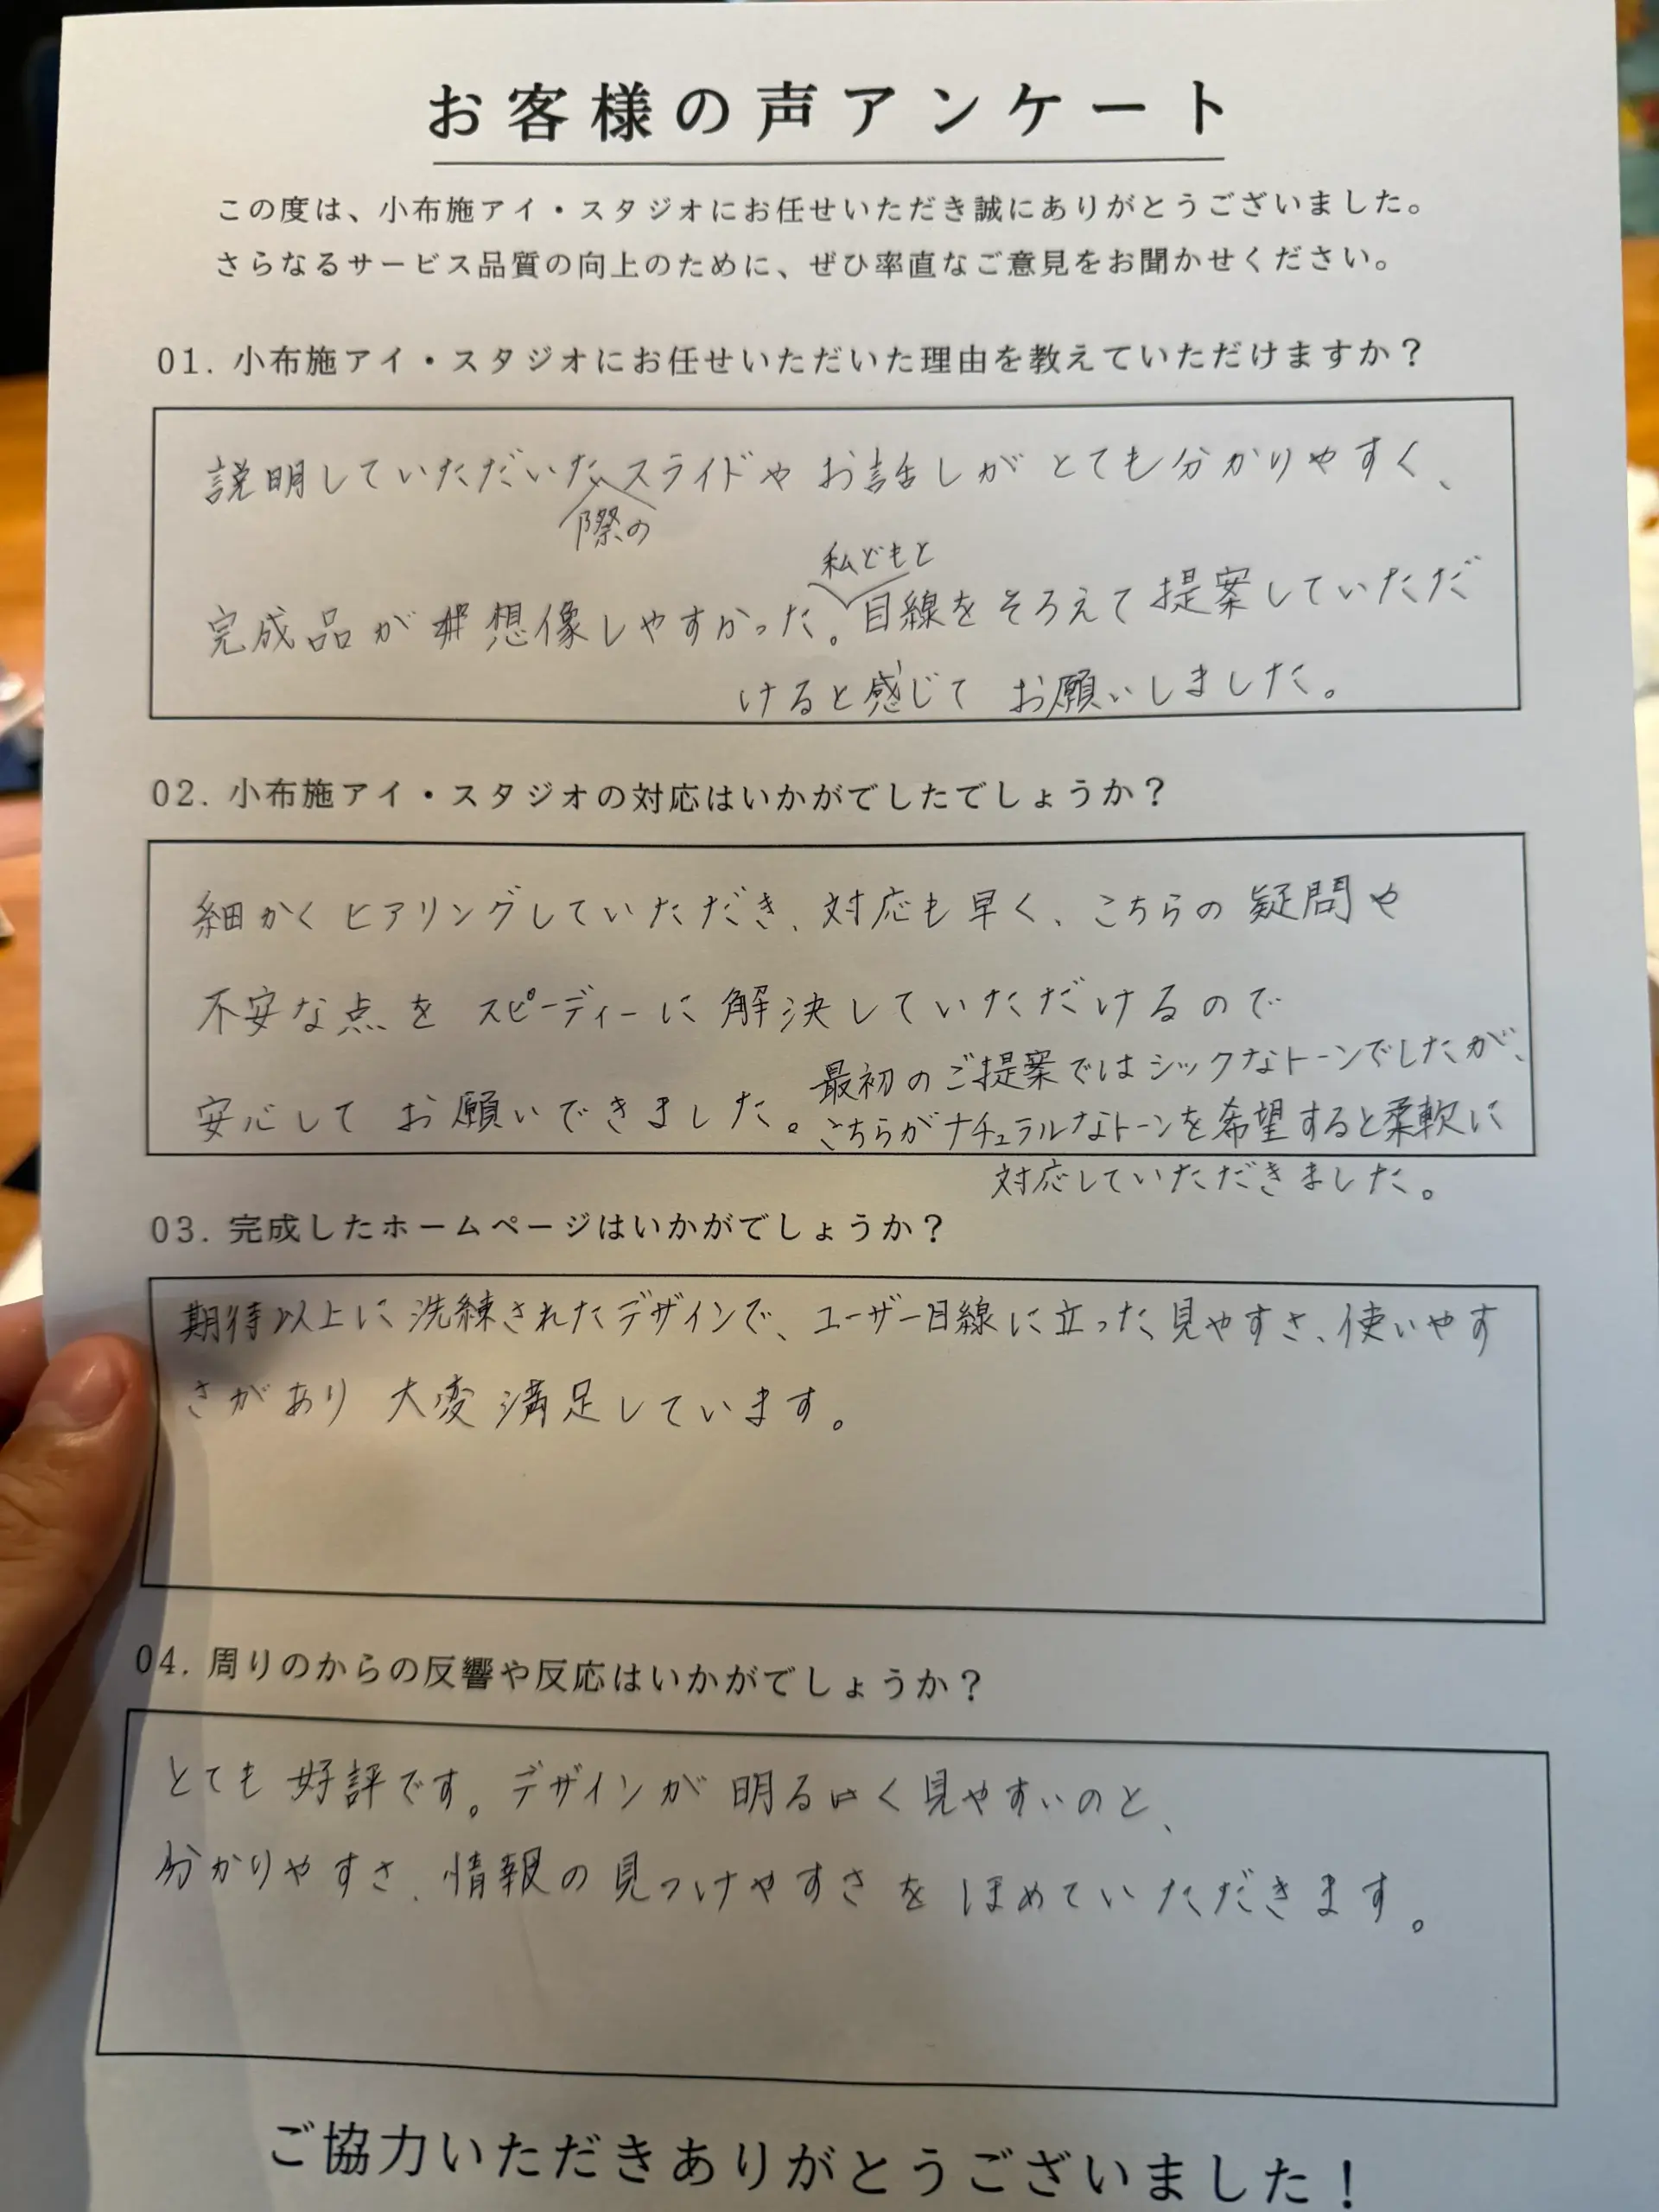 お客様の声アンケート
この度は、小布施アイ・スタジオにお任せいただき誠にありがとうございました。
さらなるサービス品質の向上のために、ぜひ率直なご意見をお聞かせください。
01. 小布施アイ・スタジオにお任せいただいた理由を教えていただけますか？
説明していただいたスライドやお話しがとても分かりやすく、
際の
私どもと
完成品が想像しやすかった。目線をそろえて提案していただだ
けると感じてお願いしました。
02. 小布施アイ・スタジオの対応はいかがでしたでしょうか？
細かくヒアリングしていただき、対応も早く、こちらの疑問や
不安な点をスピーディーに解決していただけるので
安心してお願いできました。最初のご提案ではシックなトーンでしたが、
こちらがナチュラルなトーンを希望すると柔軟に
対応していただきました。
03. 完成したホームページはいかがでしょうか？
期待以上に洗練されたデザインで、ユーザー目線に立った見やすさ、使いやす
さがあり大変満足しています。
04. 周りのからの反響や反応はいかがでしょうか？
とても好評です。デザインが明るく見やすいのと、
分かりやすさ、情報の見つけやすさをほめていただきます。
ご協力いただきありがとうございました！